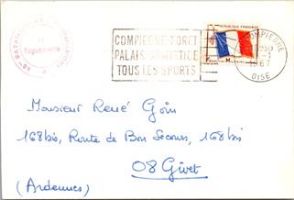 COMPIEGNE FORET
PALAIS
TOUS LES SPORTS
REPUBLIQUE FRANCAISE
COMPIEGNE
1967
OISE
Monsieur René Goin
168bis, Route de Bon Secours, 168bis
08 Givet
(Ardennes)